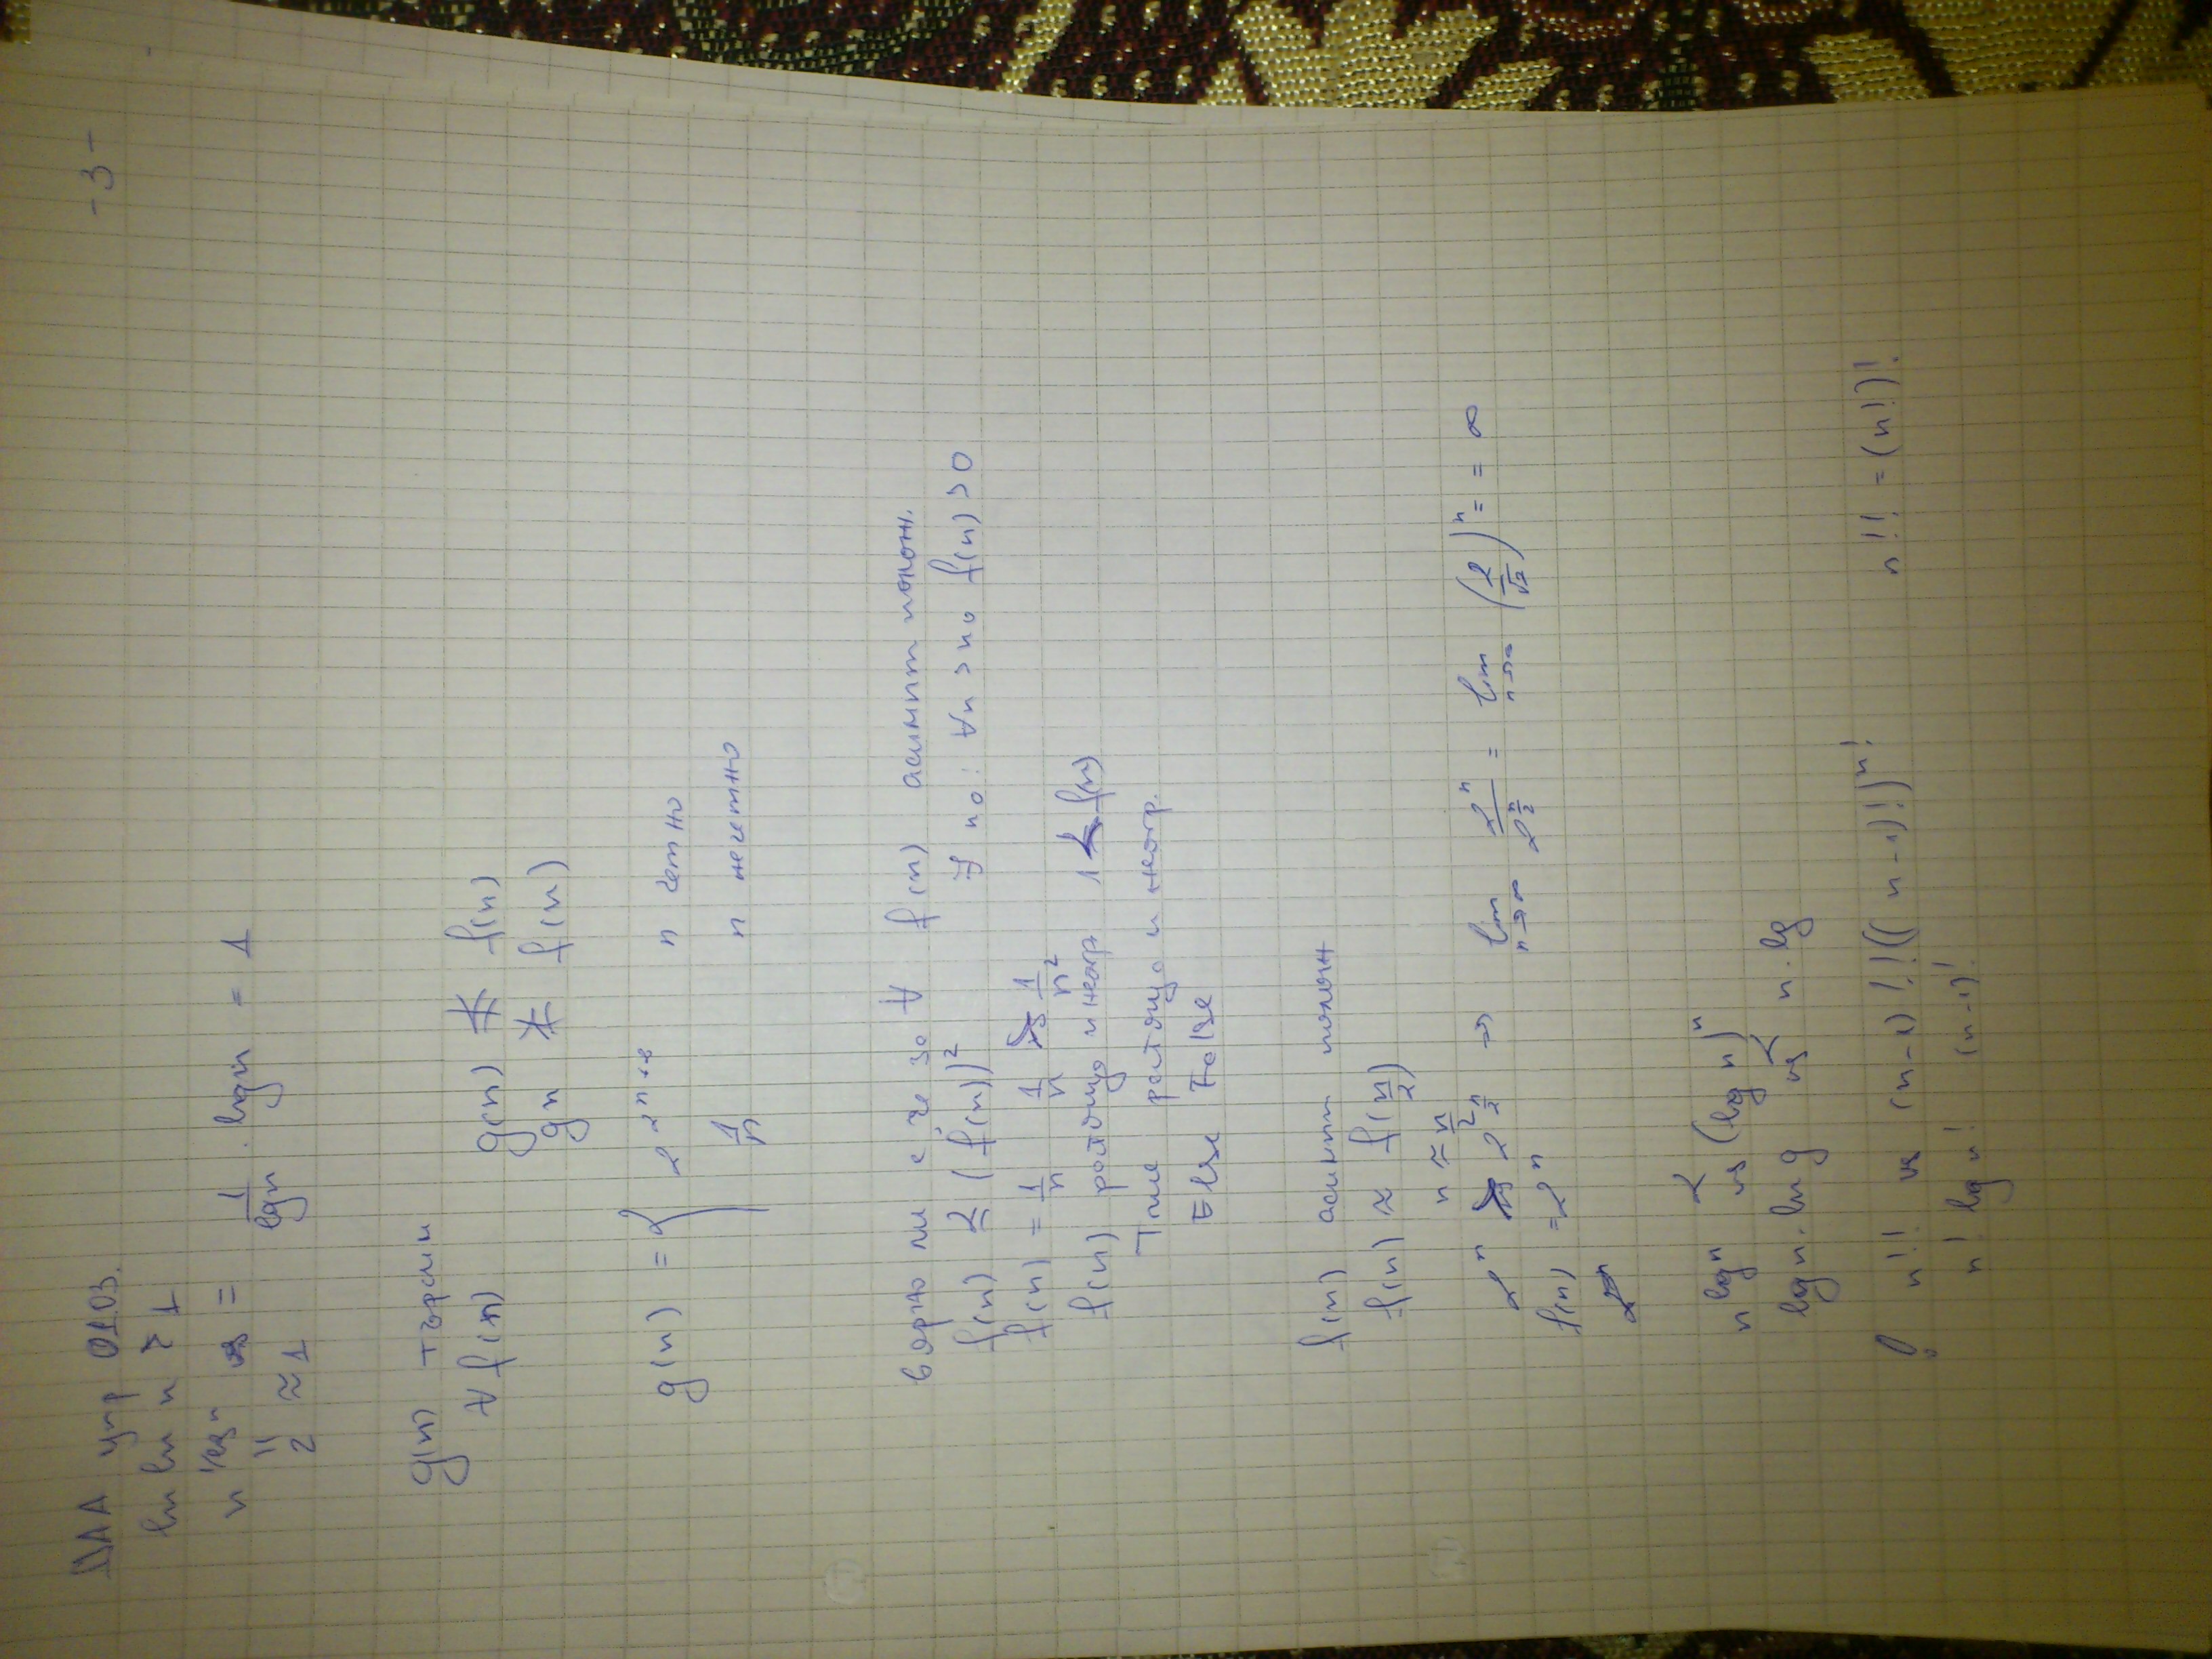 -3-
ДАА упр 01.03.
ln ln n ≻ 1
n^(1/lg n) = 1/lg n · log n = 1
2 ≈ 1
g(n) търсим
∀ f(n) g(n) ≭ f(n)
g n ≭ f(n)
g(n) = { 2^2^n n четно
1/n n нечетно
вярно ли е че за ∀ f(n) асимпт полож.
f(n) ⪯ (f(n))² ∃ n₀: ∀n > n₀ f(n) > 0
f(n) = 1/n 1/n 1/n²
f(n) растящо и неогр 1 ≺ f(n)
True растящо и неогр.
Else False
f(n) асимпт полож
f(n) ≈ f(n/2)
n ≈ n/2
2^n 2^(n/2) ⇒ lim n→∞ 2^n / 2^(n/2) = lim n→∞ (2/√2)^n = = ∞
f(n) = 2^n
n^(log n) ≺ vs (log n)^n
log n · ln g vs ≺ n · lg
n!! vs (n-1)! ! ((n-1)!)^n! n!! = (n!)!
n! log n! (n-1)!